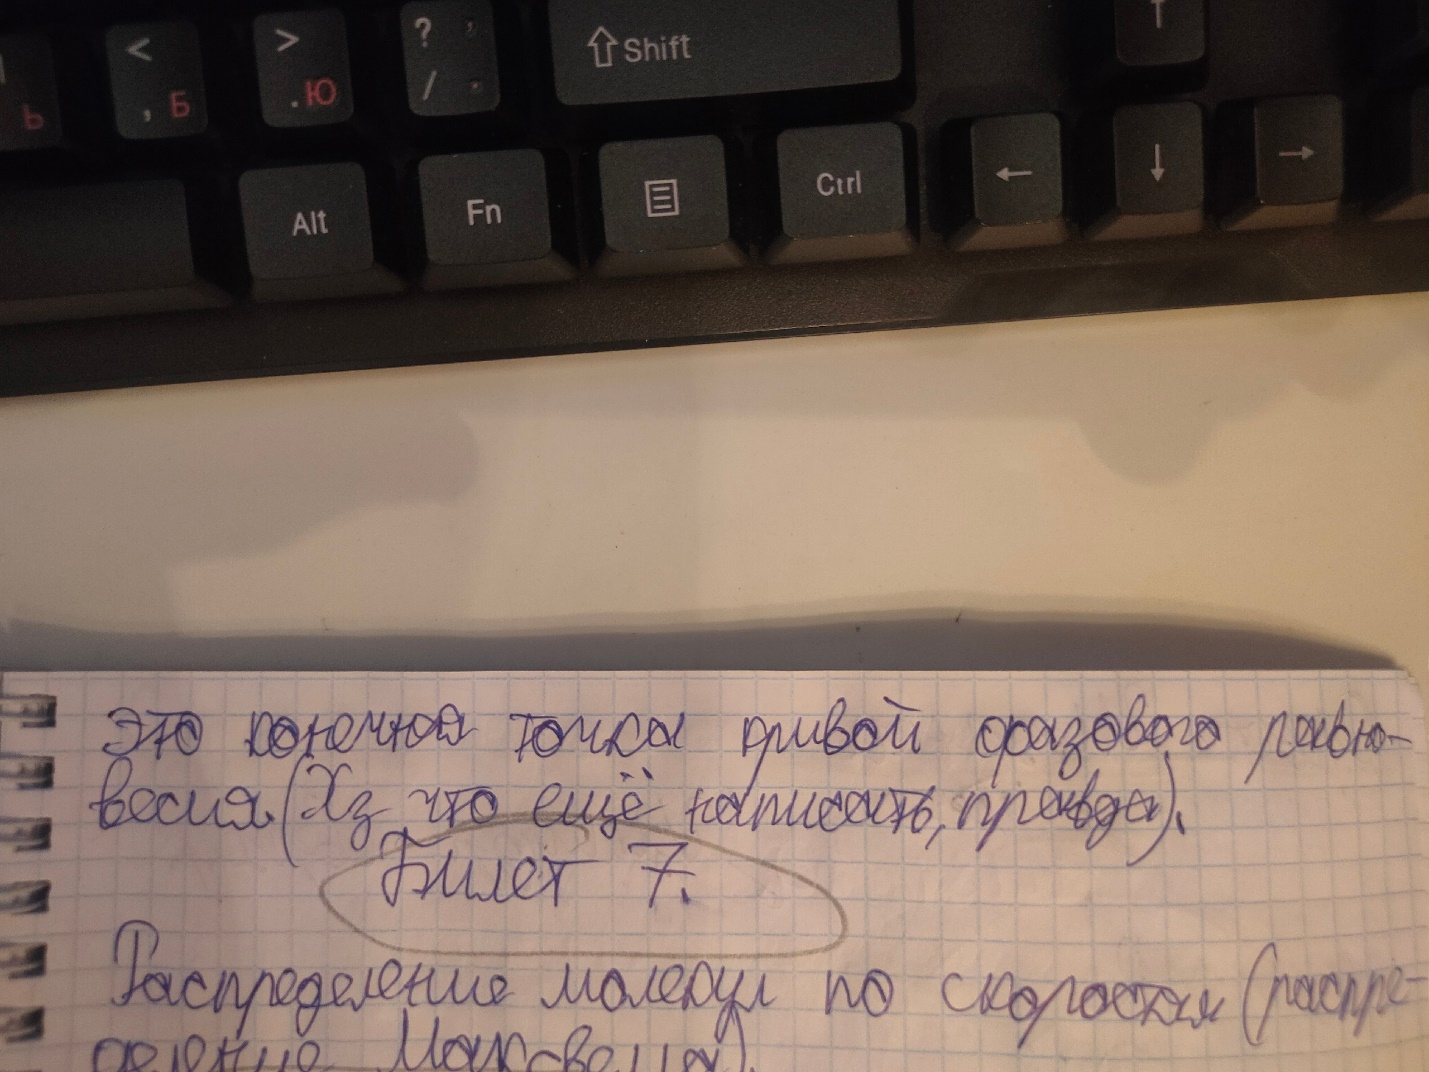 < > ? ,
Ь , Б . Ю / .
Shift
Alt Fn Ctrl
это конечная точка кривой фазового равно-
весия (Хз что ещё написать, правда).
Билет 7.
Распределение молекул по скоростям (распре-
деление Максвелла).